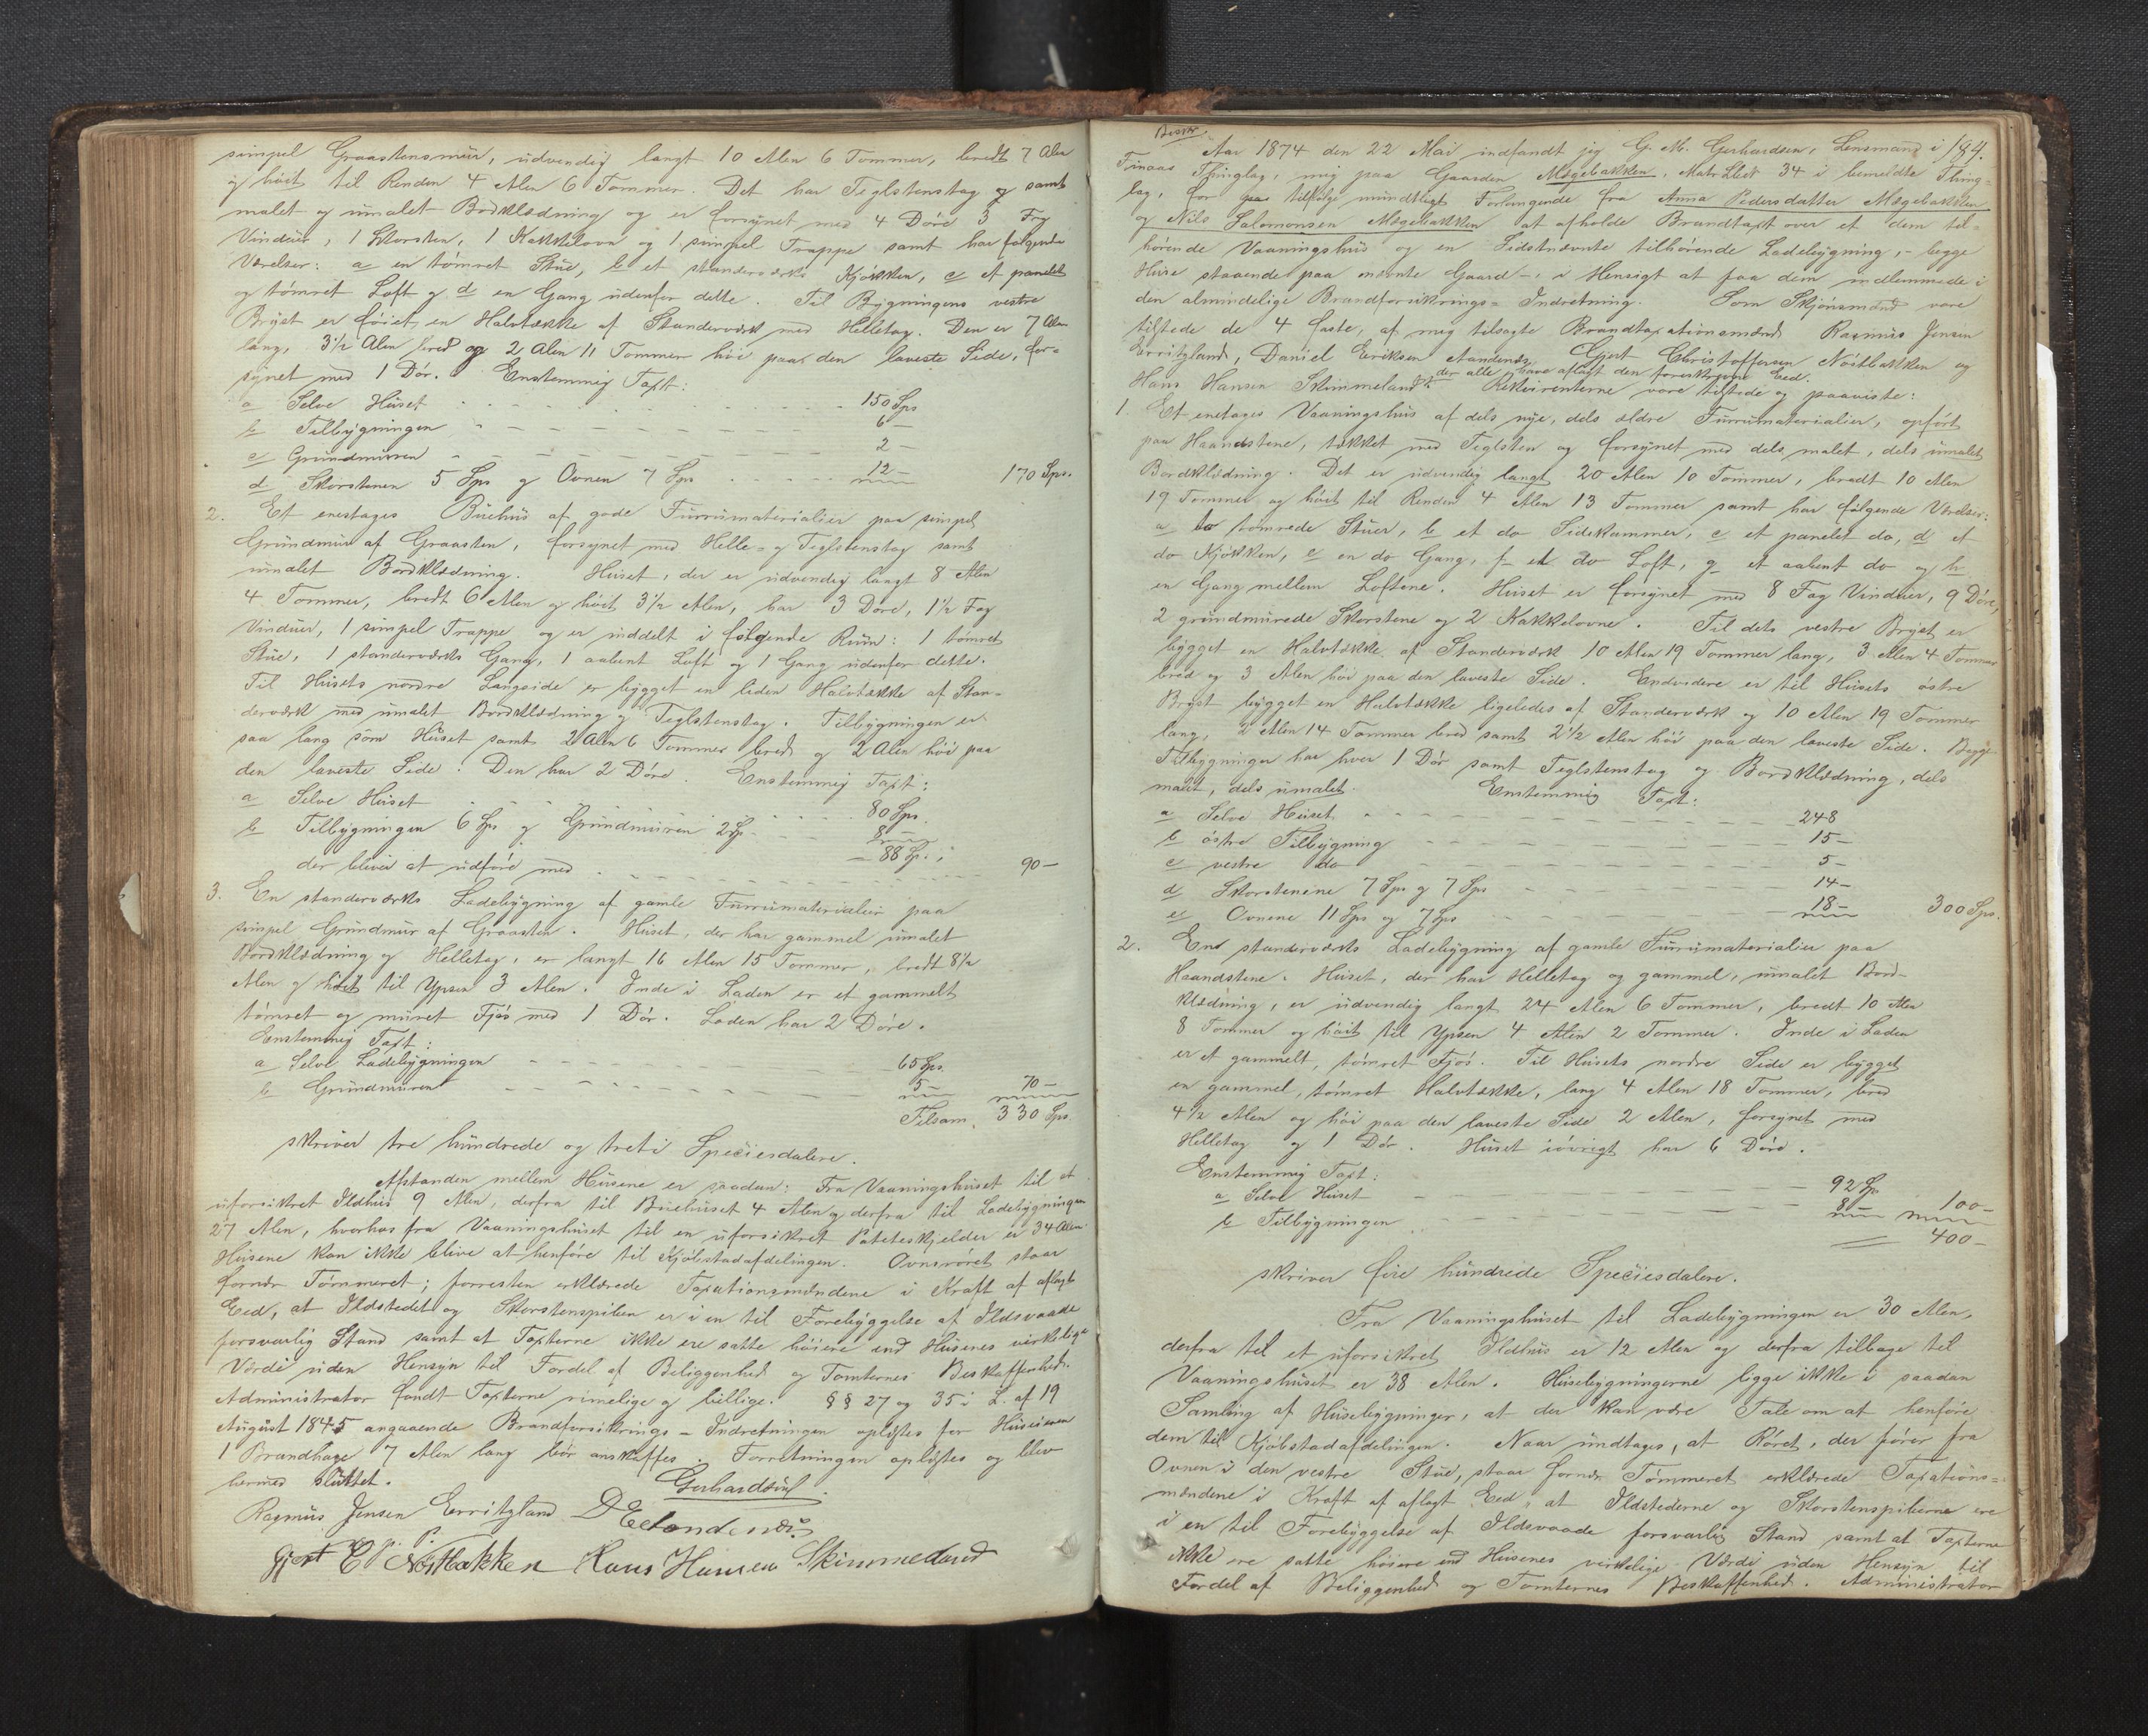 simpel Graastensmur, udvendig langt 10 Alen 6 Tommer, bredt 7 Alen
og höit til Renden 4 Alen 6 Tommer. Det har Teglstenstag og samt
malet og umalet Bordklædning og er forsynet med 4 Döre 3 Fag
Vinduer, 1 Skorsten, 1 Kakkelovn og 1 simpel Trappe samt har følgende
Værelser: a en tömret Stue, b et standerværks Kjökken, c et panelet
og tömret Loft og d en Gang udenfor dette. Til Bygningens vestre
Bryst er föiet en Halvtække af Standerværk med Helletag. Den er 7 Alen
lang, 3½ Alen bred og 2 Alen 11 Tommer höi paa den laveste Side, for-
synet med 1 Dör. Enstemmig Taxt:
a Selve Huset 150 Sps
b Tilbygningen 6 –
c Grundmuren 2 –
d Skorstenen 5 Sps og Ovnen 7 Sps 12 – 170 Sps.
2. Et enetages Buehus af gode Furrumaterialier paa simpel
Grundmur af Graasten, forsynet med Helle- og Teglstenstag samt
umalet Bordklædning. Huset, der er udvendig langt 8 Alen
4 Tommer, bredt 6 Alen og höit 3½ Alen, har 3 Döre, 1½ Fag
Vinduer, 1 simpel Trappe og er inddelt i følgende Rum: 1 tömret
Stue, 1 standerværks Gang, 1 aabent Loft og 1 Gang udenfor dette.
Til Husets nordre Langside er bygget en liden Halvtække af Stan-
derværk med umalet Bordklædning og Teglstenstag. Tilbygningen er
saa lang som Huset samt 2 Alen 6 Tommer bred og 2 Alen höi paa
den laveste Side. Den har 2 Döre. Enstemmig Taxt:
a Selve Huset 80 Sps.
b Tilbygningen 6 Sps og Grundmuren 2 Sp. 8 –
– 88 Sp.;
der bliver at udföre med 90 –
3. En standerværks Ladebygning af gamle Furrumaterialier paa
simpel Grundmur af Graasten. Huset, der har gammel umalet
Bordklædning og Helletag, er langt 16 Alen 15 Tommer, bredt 8½
Alen og höit til Ypsen 3 Alen. Inde i Laden er et gammelt
tömret og muret Fjös med 1 Dör. Laden har 2 Döre.
Enstemmig Taxt:
a Selve Ladebygningen 65 Sps.
b Grundmuren 5 – 70 –
Tilsam. 330 Sps.
skriver tre hundrede og treti Speciesdalere.
Afstanden mellem Husene er saadan: Fra Vaaningshuset til et
uforsikret Ildhus 9 Alen, derfra til Buehuset 4 Alen og derfra til Ladebygningen
27 Alen, hvorhos fra Vaaningshuset til en uforsikret Poteteskjelder er 34 Alen
Husene kan ikke blive at henföre til Kjöbstadafdelingen. Ovnsröret staar
fornær Tömmeret; forresten erklærede Taxationsmændene i Kraft af aflagt
Eed, at Ildstedet og Skorstenspiben er i en til Forebyggelse af Ildsvaade
forsvarlig Stand samt at Taxterne ikke ere satte höiere end Husenes virkelige
Værdi uden Hensyn til Fordel af Beliggenhed og Tomternes Beskaffenhed.
Administrator fandt Taxterne rimelige og billige. §§ 27 og 35 i L. af 19
August 1845 angaaende Brandforsikrings-Indretningen oplæstes for Huseieren
1 Brandhage 7 Alen lang bör anskaffes. Forretningen oplæstes og blev
hermed sluttet.
Gerhardsen.
Rasmus Jensen Erritzland D E Aandenæs
Gjert C. Nöstbakken Hans Hansen Skimmeland
Aar 1874 den 22 Mai indfandt jeg G. M. Gerhardsen, Lensmand i 184.
Finaas Thinglag, mig paa Gaarden Møgebakken, Matr. Löbe 34 i bemeldte Thing-
lag, for tilfølge mundtligt Forlangende fra Anna Pedersdatter Møgebakken
og Nils Salomonsen Møgebakken at afholde Brandtaxt over et dem til-
hørende Vaaningshus og en Sidstnævnte tilhørende Ladebygning, – begge
Huse staaende paa nævnte Gaard – i Hensigt at faa dem indlemmede i
den almindelige Brandforsikrings-Indretning. Som Skjönsmænd vare
tilstede de 4 faste, af mig tilsagte Brandtaxationsmænd Rasmus Jensen
Erritzland, Daniel Eriksen Aandenæs, Gjert Christoffersen Nöstbakken og
der alle have aflagt den foreskrevne Eed.
Hans Hansen Skimmeland. Rekvirenterne vare tilstede og paaviste:
1. Et enetages Vaaningshus af dels nye, dels ældre Furrumaterialier, opfört
paa Haandstene, tækket med Teglsten og forsynet med dels malet, dels umalet
Bordklædning. Det er udvendig langt 20 Alen 10 Tommer, bredt 10 Alen
19 Tommer og höit til Renden 4 Alen 13 Tommer samt har følgende Værelser:
a to tömrede Stuer, b et do Sidekammer, c et panelet do, d et
do Kjökken, e en do Gang, f et do Loft, g et aabent do og h
en Gang mellem Loftene. Huset er forsynet med 8 Fag Vinduer, 9 Döre,
2 grundmurede Skorstene og 2 Kakkelovne. Til dets vestre Bryst er
bygget en Halvtække af Standerværk 10 Alen 19 Tommer lang, 3 Alen 4 Tommer
bred og 3 Alen höi paa den laveste Side. Endvidere er til Husets östre
Bryst bygget en Halvtække ligeledes af Standerværk og 10 Alen 19 Tommer
lang, 2 Alen 14 Tommer bred samt 2½ Alen höi paa den laveste Side. Begge
Tilbygninger har hver 1 Dör samt Teglstenstag og Bordklædning, dels
malet, dels umalet. Enstemmig Taxt:
a Selve Huset 248
b östre Tilbygning 15 –
c vestre do 5 –
d Skorstenene 7 Sps og 7 Sps 14 –
e Ovnene 11 Sps og 7 Sps 18 – 300 Sps.
2. En standerværks Ladebygning af gamle Furrumaterialier paa
Haandstene. Huset, der har Helletag og gammel, umalet Bord-
klædning, er udvendig langt 24 Alen 6 Tommer, bredt 10 Alen
8 Tommer og höit til Ypsen 4 Alen 2 Tommer. Inde i Laden
er et gammelt, tömret Fjös. Til Husets nordre Side er bygget
en gammel, tömret Halvtække, lang 4 Alen 18 Tommer, bred
4½ Alen og höi paa den laveste Side 2 Alen, forsynet med
Helletag og 1 Dör. Huset iövrigt har 6 Döre.
Enstemmig Taxt:
a Selve Huset 92 Sp
b Tilbygningen 8 – 100 –
400 –
skriver fire hundrede Speciesdalere.
Fra Vaaningshuset til Ladebygningen er 30 Alen,
derfra til et uforsikret Ildhus er 12 Alen og derfra tilbage til
Vaaningshuset er 38 Alen. Husebygningerne ligge ikke i saadan
Samling af Husebygninger, at der kan være Tale om at henföre
dem til Kjöbstadafdelingen. Naar undtages, at Röret, der förer fra
Ovnen i den vestre Stue, staar fornær Tömmeret erklærede Taxations-
mændene i Kraft af aflagt Eed, at Ildstederne og Skorstenspiberne ere
i en til Forebyggelse af Ildsvaade forsvarlig Stand samt at Taxterne
ikke ere satte höiere end Husenes virkelige Værdi uden Hensyn til
Fordel af Beliggenhed og Tomternes Beskaffenhed. Administrator